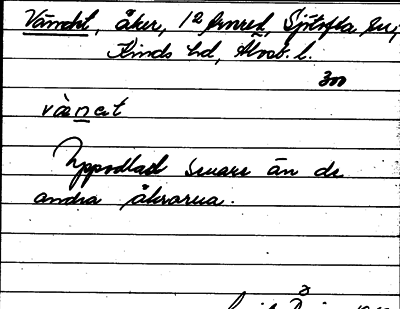 Vändet, åker, 1² Gunred, Sjötofta sn,
Kinds hd, Älvsb. l.
300
vä̀net
Uppodlad senare än de
andra åkrarna.